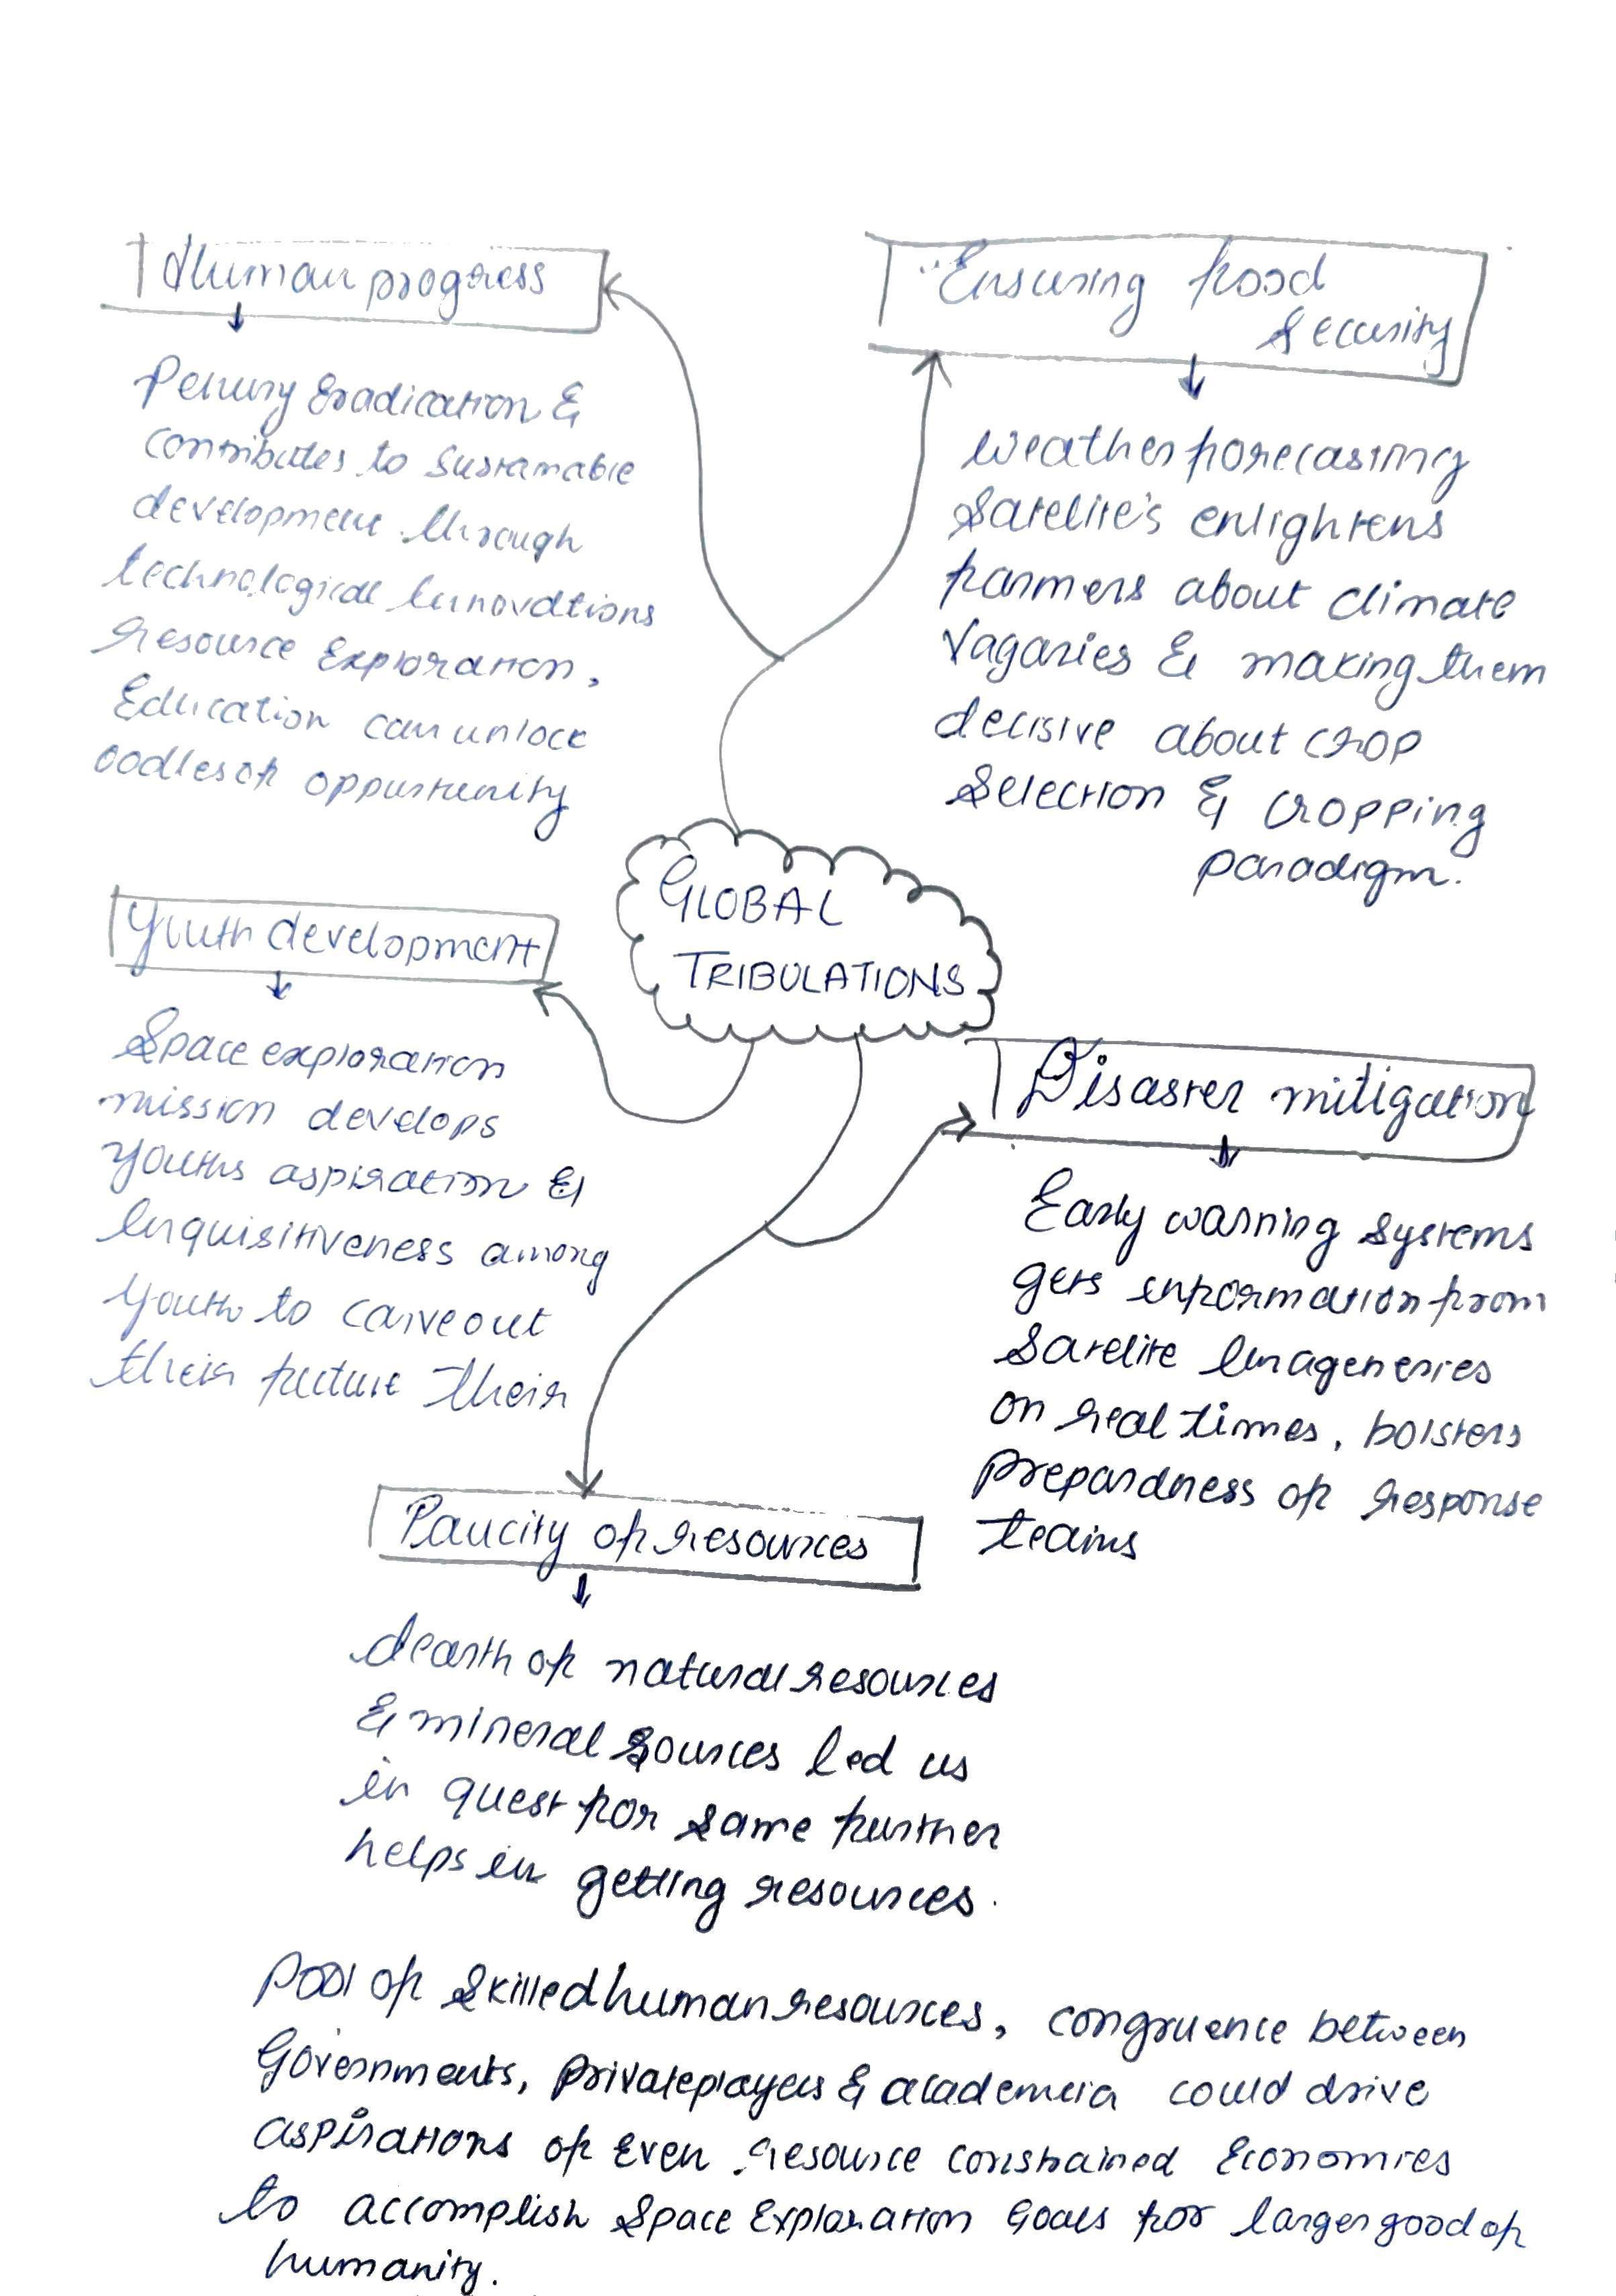 Human progress
Penury Eradication &
contributes to Sustainable
development through
technological Innovations
Resource Exploration,
Education can unlock
oodles of oppurtunity
Ensuring food
Security
Weather forecasing
Satelite's enlightens
farmers about climate
Vagaries & making them
decisive about crop
Selection & cropping
paradigm.
GLOBAL
TRIBULATIONS
Youth development
Space exploration
mission develops
Youths aspiration &
Inquisitiveness among
Youth to carve out
their future their
Disaster mitigation
Early warning systems
gets information from
Satelite Imageneries
on real times, bolsters
Prepardness of response
teams
Paucity of resources
dearth of natural resources
& mineral Sources led us
in quest for same further
helps in getting resources.
Pool of Skilled human resources, congruence between
Governments, Private players & academeia could drive
aspirations of Even resource constrained Economies
to accomplish Space Exploration Goals for larger good of
humanity.